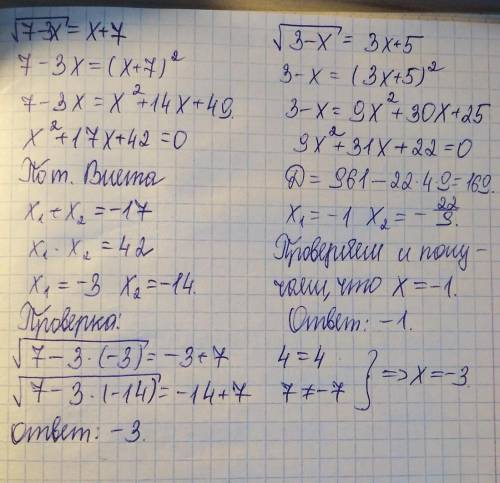 √7-3x = x+7
7-3x = (x+7)²
7-3x = x²+14x+49.
x²+17x+42=0
По т. Виета
x₁+x₂ = -17
x₁·x₂ = 42
x₁ = -3 x₂ = -14.
Проверка:
√7-3·(-3) = -3+7 4=4
√7-3·(-14) = -14+7 7≠-7 } => x=-3.
Ответ: -3.
√3-x = 3x+5
3-x = (3x+5)²
3-x = 9x²+30x+25
9x²+31x+22=0
D = 961-22·4·9=169.
x₁=-1 x₂=-22/9.
Проверяем и полу-
чаем, что x=-1.
Ответ: -1.